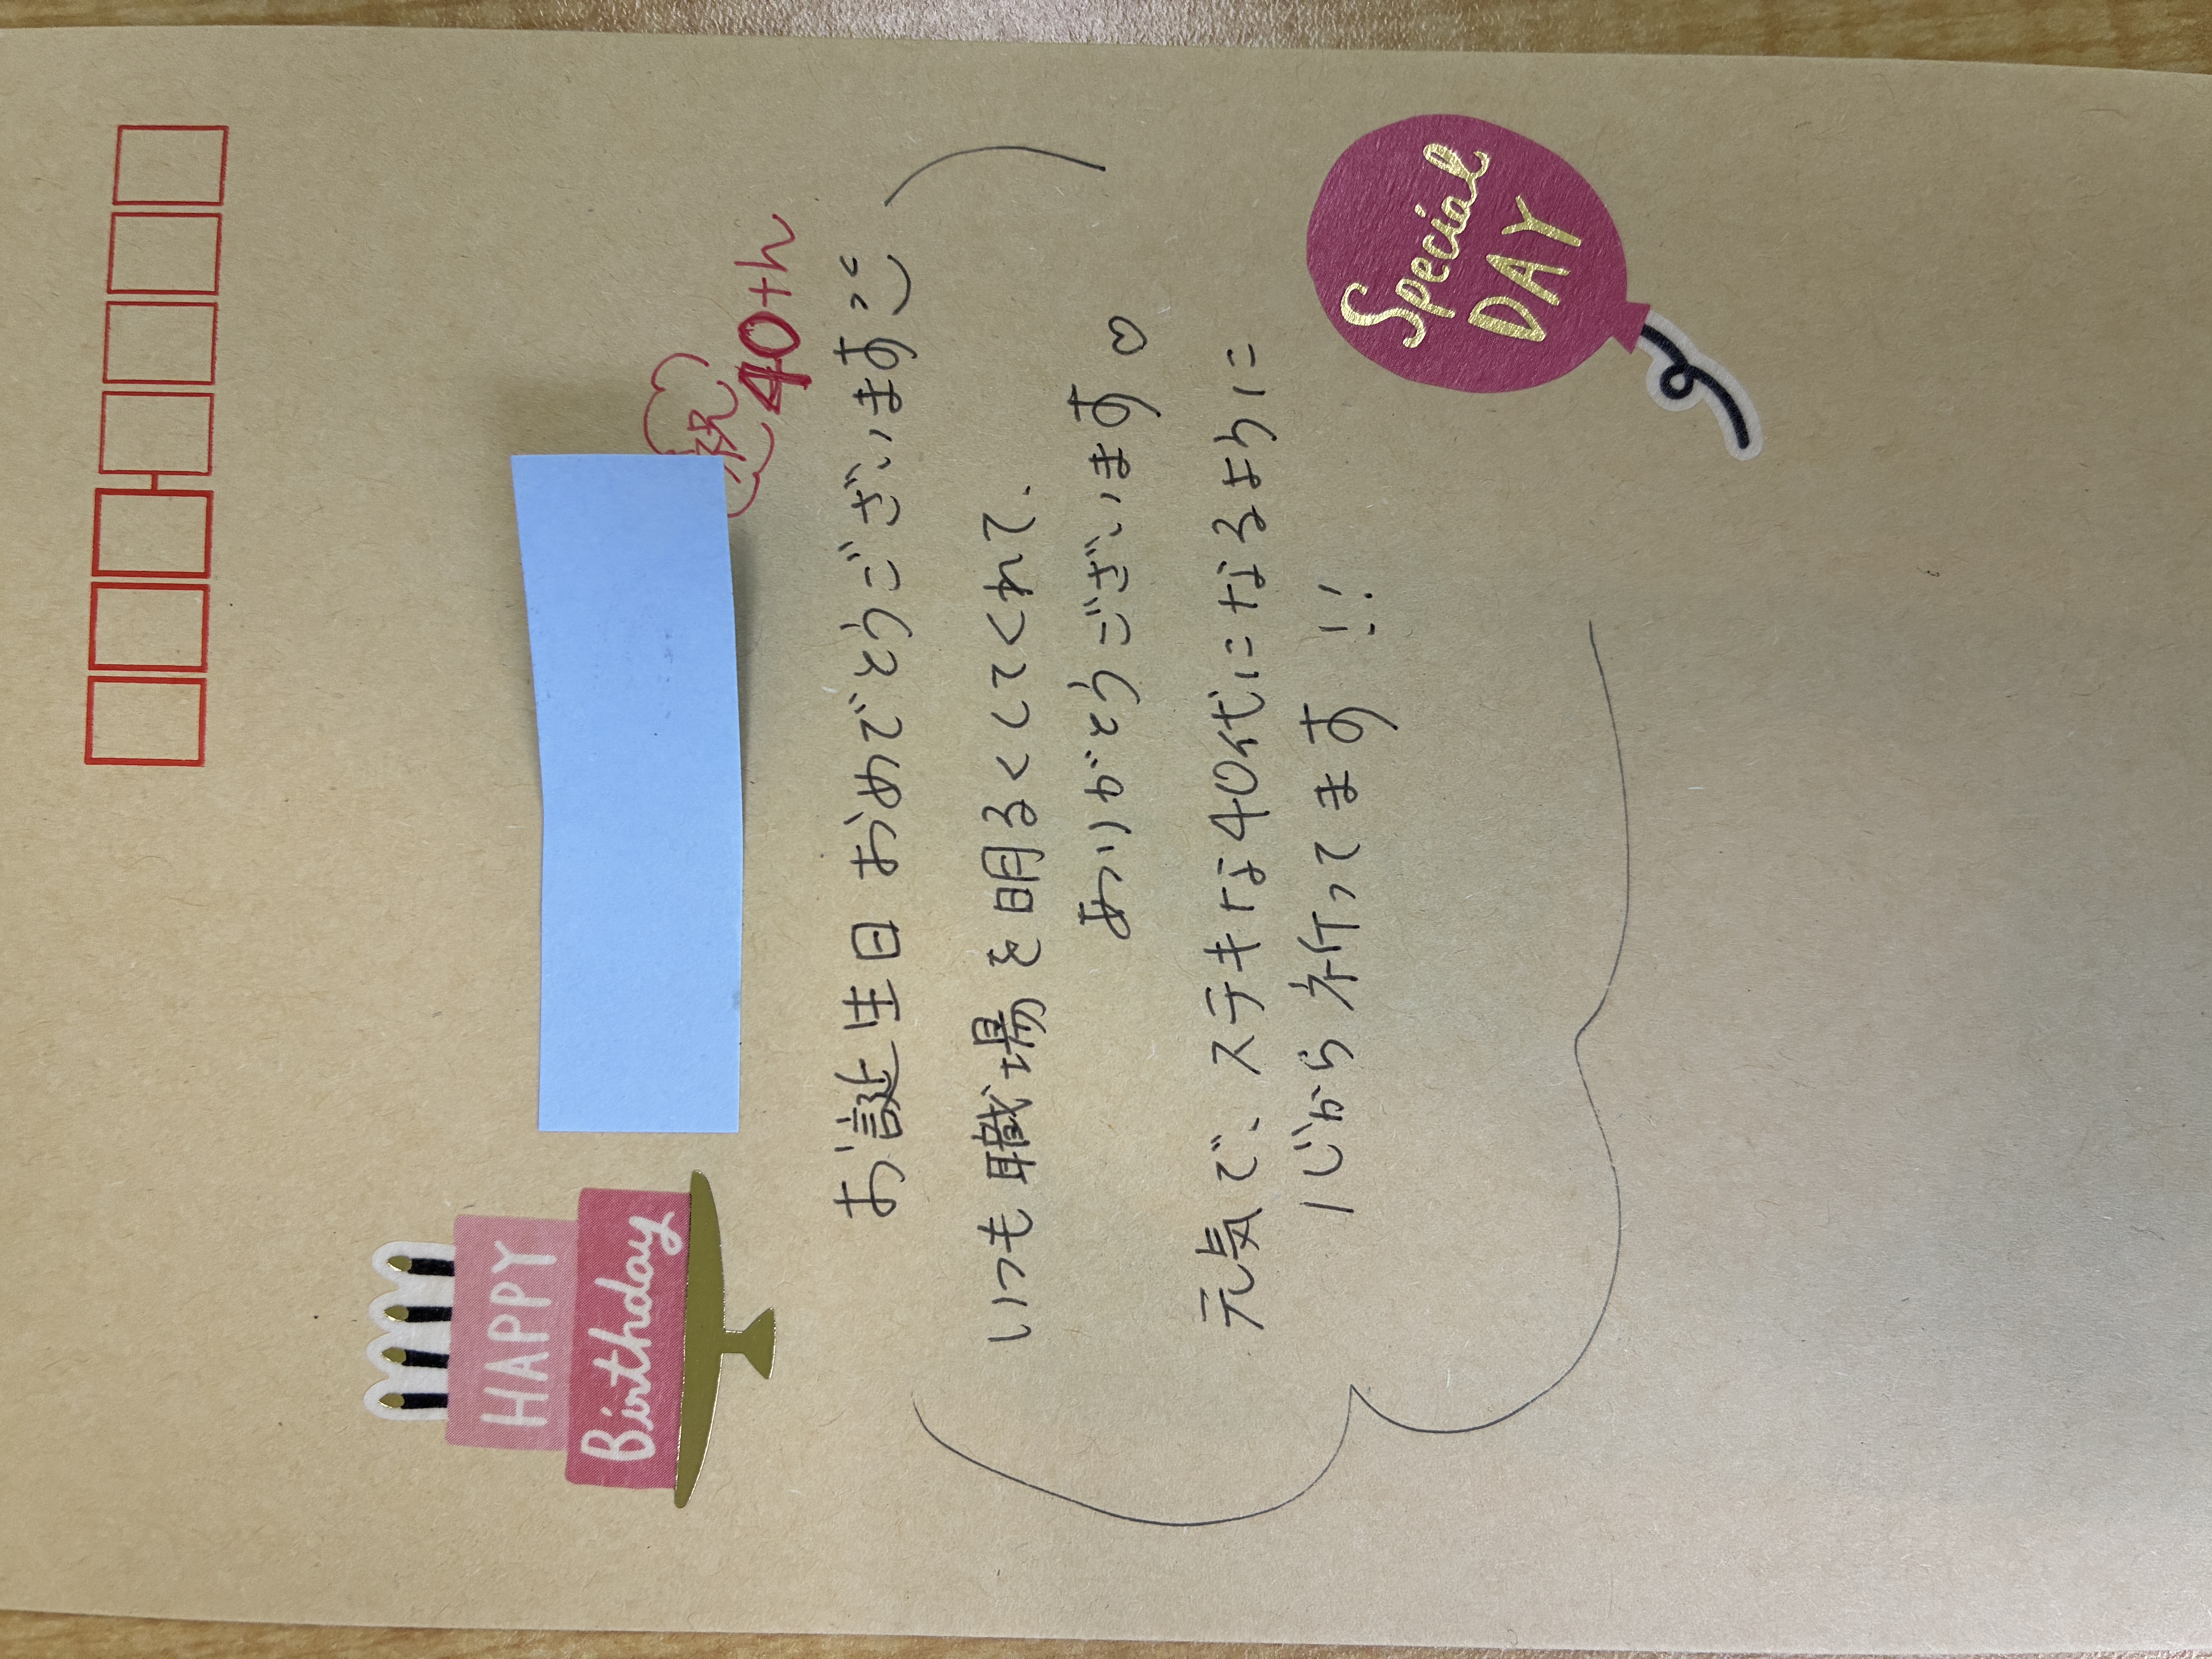 HAPPY
Birthday
祝
40th
お誕生日 おめでとうございます
いつも職場を明るくしてくれて、
ありがとうございます♡
元気で、ステキな40代になるように
心から祈ってます!!
Special
DAY